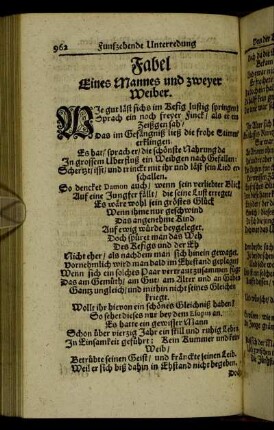 962 Funfzehende Unterredung
Fabel
Eines Mannes und zweyer
Weiber.
WIe gut läst sichs im Kefig lustig springen!
Sprach ein noch freyer Finck, als er ein
Zeißgen sah,
Das im Gefängniß ließ die frohe Stimm'
erklingen.
Es hat, sprach er, die schönste Nahrung da
In grossem Uberfluß ein Weibgen nach Gefallen:
Schertzt, isst, und trinckt mit ihr und läst sein Lied er-
schallen.
So dencket Damon auch, wenn sein verliebter Blick
Auf eine Jungfer fällt, die seine Lust erreget;
Es wäre wohl sein gröstes Glück
Wenn ihme nur geschwind
Das angenehme Kind
Auf ewig würde beygeleget.
Doch spürt man das Weh
Des Kefigs und der Eh
Nicht eher, als nachdem man sich hinein gewaget.
Vornehmlich wird man bald im Ehestand geplaget
Wenn sich ein solches Paar vertraut zusammen fügt
Das am Gemüth, am Gut, am Alter und an Gaben
Gantz ungleich, und mithin nicht seines Gleichen
kriegt.
Wollt ihr hievon ein schönes Gleichniß haben?
So sehet dieses nur bey dem Esopus an.
Es hatte ein gewisser Mann
Schon über vierzig Jahr ein still und ruhig Leben
In Einsamkeit geführt: Kein Kummer und kein
Weib,
Betrübte seinen Geist, und kränckte seinen Leib.
Weil er sich biß dahin in Ehstand nicht begeben.